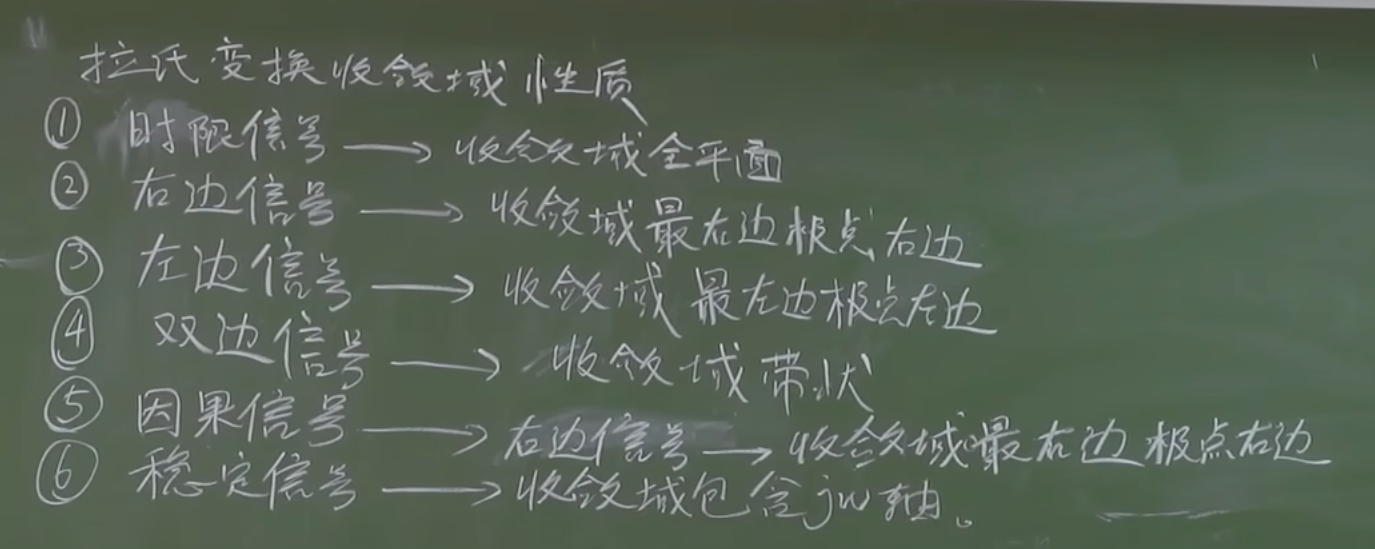 拉氏变换收敛域性质
① 时限信号 → 收敛域全平面
② 右边信号 → 收敛域最右边极点右边
③ 左边信号 → 收敛域最左边极点左边
④ 双边信号 → 收敛域带状
⑤ 因果信号 → 右边信号 → 收敛域最右边极点右边
⑥ 稳定信号 → 收敛域包含jw轴。